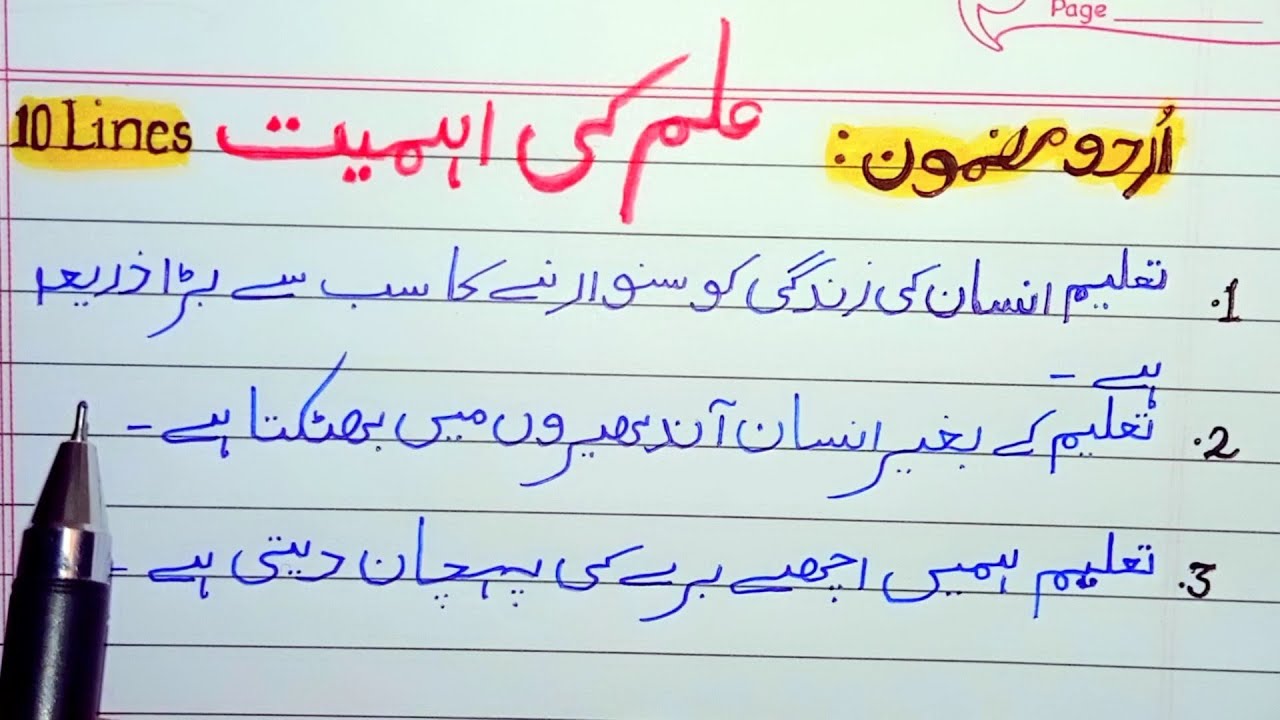 Page
اُردو مضمون: علم کی اہمیت 10 Lines
1. تعلیم انسان کی زندگی کو سنوارنے کا سب سے بڑا ذریعہ
ہے ۔
2. تعلیم کے بغیر انسان آندھیروں میں بھٹکتا ہے ۔
3. تعلیم ہمیں اچھے برے کی پہچان دیتی ہے ۔